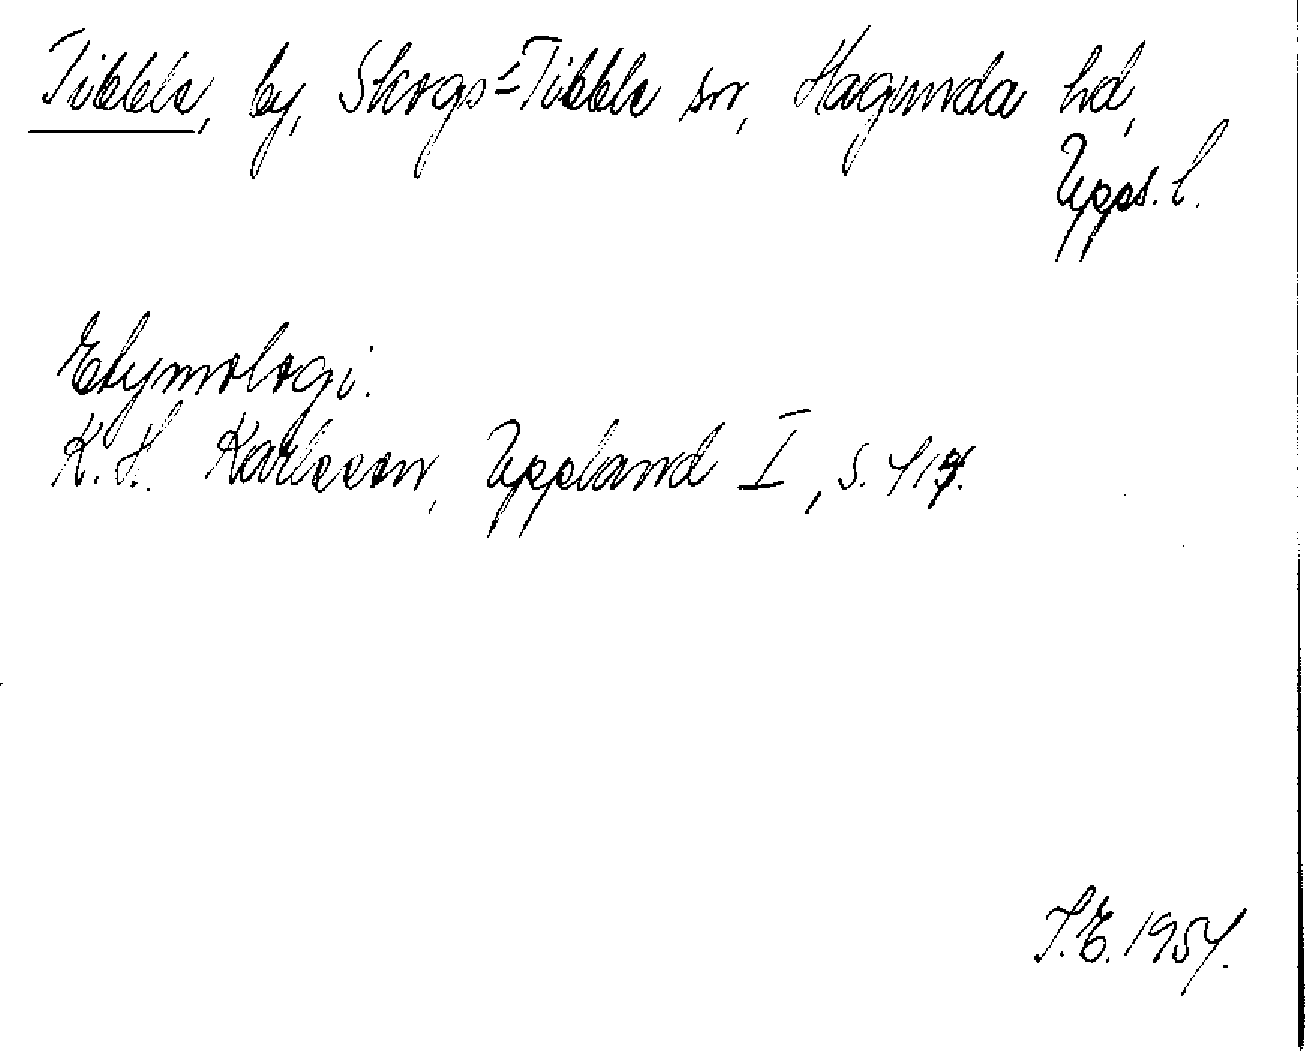 Tibble, by, Skogs-Tibble sn, Hagunda hd,
Upps. l.
Etymologi.
K. H. Karlsson, Uppland I, s. 419.
T.E. 1954.